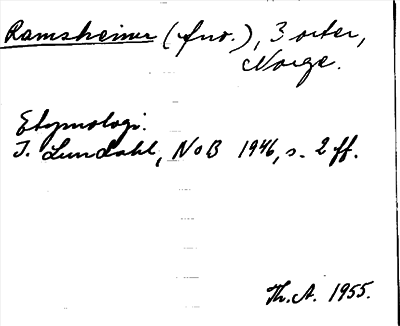 Ramsheimr (fno.), 3 orter,
Norge.
Etymologi.
I. Lundahl, NoB 1946, s. 2 ff.
Th. A. 1955.